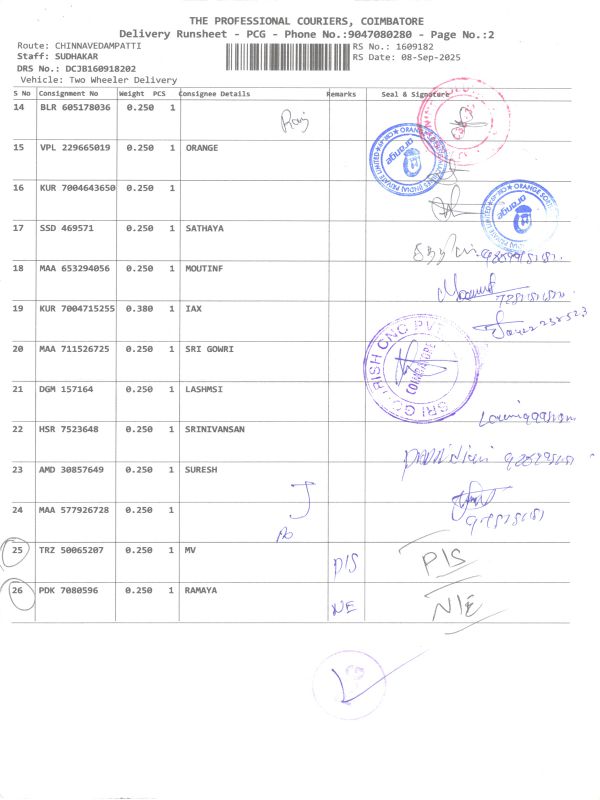 THE PROFESSIONAL COURIERS, COIMBATORE
Delivery Runsheet - PCG - Phone No.:9047080280 - Page No.:2
Route: CHINNAVEDAMPATTI RS No.: 1609182
Staff: SUDHAKAR RS Date: 08-Sep-2025
DRS No.: DCJB160918202
Vehicle: Two Wheeler Delivery
S No Consignment No Weight PCS Consignee Details Remarks Seal & Signature
14 BLR 605178036 0.250 1
15 VPL 229665019 0.250 1 ORANGE
16 KUR 7004643650 0.250 1
17 SSD 469571 0.250 1 SATHAYA
18 MAA 653294056 0.250 1 MOUTINF
19 KUR 7004715255 0.380 1 IAX
20 MAA 711526725 0.250 1 SRI GOWRI
COIMBATORE
21 DGM 157164 0.250 1 LASHMSI
22 HSR 7523648 0.250 1 SRINIVANSAN
23 AMD 30857649 0.250 1 SURESH
24 MAA 577926728 0.250 1
25 TRZ 50065207 0.250 1 MV D/S
26 PDK 7080596 0.250 1 RAMAYA NE N/E